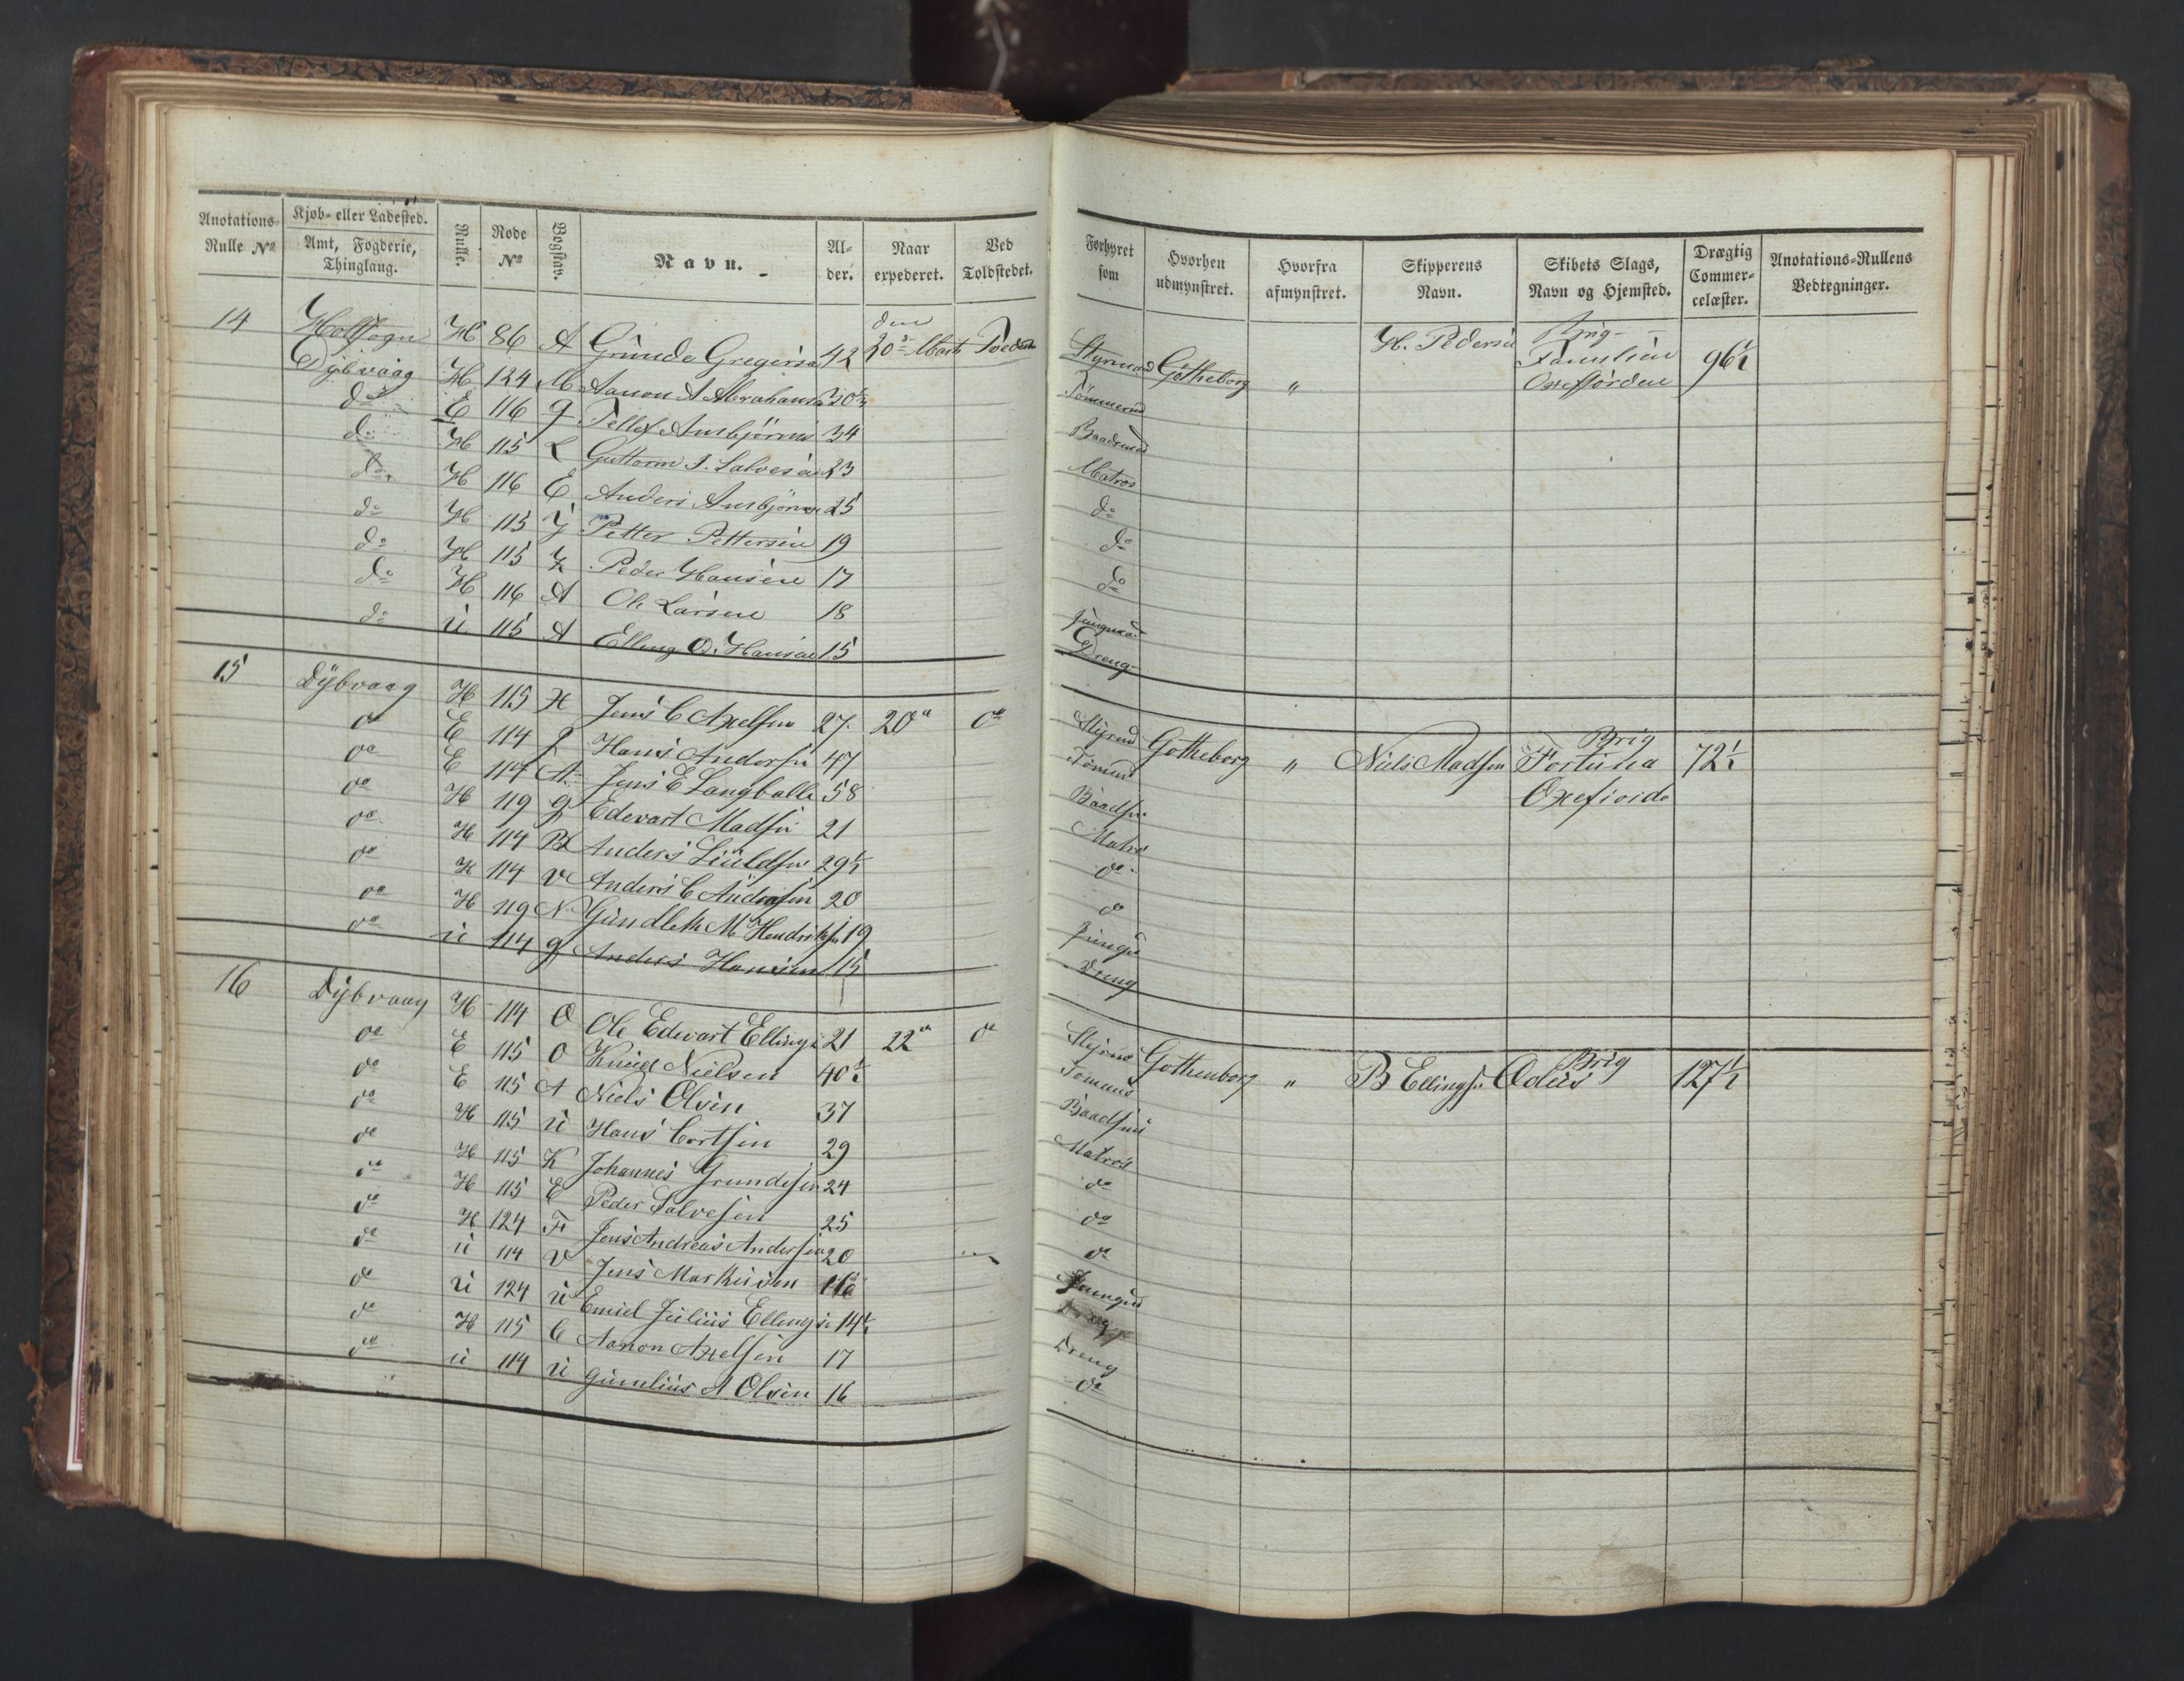 Anotations-Rulle No
Kjøb- eller Ladested.
Amt, Fogderie, Thinglaug.
Rulle.
Rode No
Bogstav.
Navn.
Alder.
Naar expederet.
Ved Toldstedet.
Forhyret som
Hvorhen udmynstret.
Hvorfra afmynstret.
Skipperens Navn.
Skibets Slags, Navn og Hjemsted.
Drægtig Commercelæster.
Anotations-Rullens Vedtegninger.
14 Holtsogn H 86 A Grunde Gregersen 42 den 20de Marts Styrmand Götheborg " H. Pedersen Brig Familien Oxefjorden 96½
Dybvaag H 124 M Aanon A Abrahamsen 30½ Tømmermd
do E 116 g Tellef Ansbjørnsen 34 Baadsmd
do H 115 L Guttorm J. Salvesen 23 Matros
do H 116 E Anders Ansbjørnsen 25 do
do H 115 Y Petter Pettersen 19 do
do H 115 Z Peder Hansen 17 do
do H 116 A Ole Larsen 18 Jungmand
do U 115 A Elling O. Hansen 15 Dreng
15 Dybvaag H 115 H Jens C Axelsen 27 20de do Styrmd Götheborg " Niels Madsen Brig Fortuna Oxefiorde 72½
do E 114 Hans Andersen 47 Tømmd
do E 114 A Jens E Langballe 58 Baadsm
do H 119 g Edevart Madsen 21 Matros
do H 114 B Anders Liuldsen 29½ do
do H 114 V Anders C Andersen 20 do
do H 119 N Gundlek M Hendriksen 19 Jungmd
do U 114 g Anders Hansen 15 Dreng
16 Dybvaag H 114 O Ole Edevart Ellingsen 21 22de do Styrmd Gothenborg " B Ellingsen Brig Ædeis 127½
do E 115 O Knud Nielsen 40½ Tømmd
do E 115 A Niels Olsen 37 Baadsm
do H 115 U Hans Cortsen 29 Matros
do H 115 K Johannes Grundesen 24 do
do H 115 E Peder Salvesen 25 do
do H 124 F Jens Andreas Andersen 20 do
do U 114 V Jens Markusen 16 Jungmd
do U 124 U Emiel Julius Ellingsen 14½ Dreng
do H 115 C Aanon Axelsen 17 Dreng
do U 114 U Gunelius A Olsen 16 do